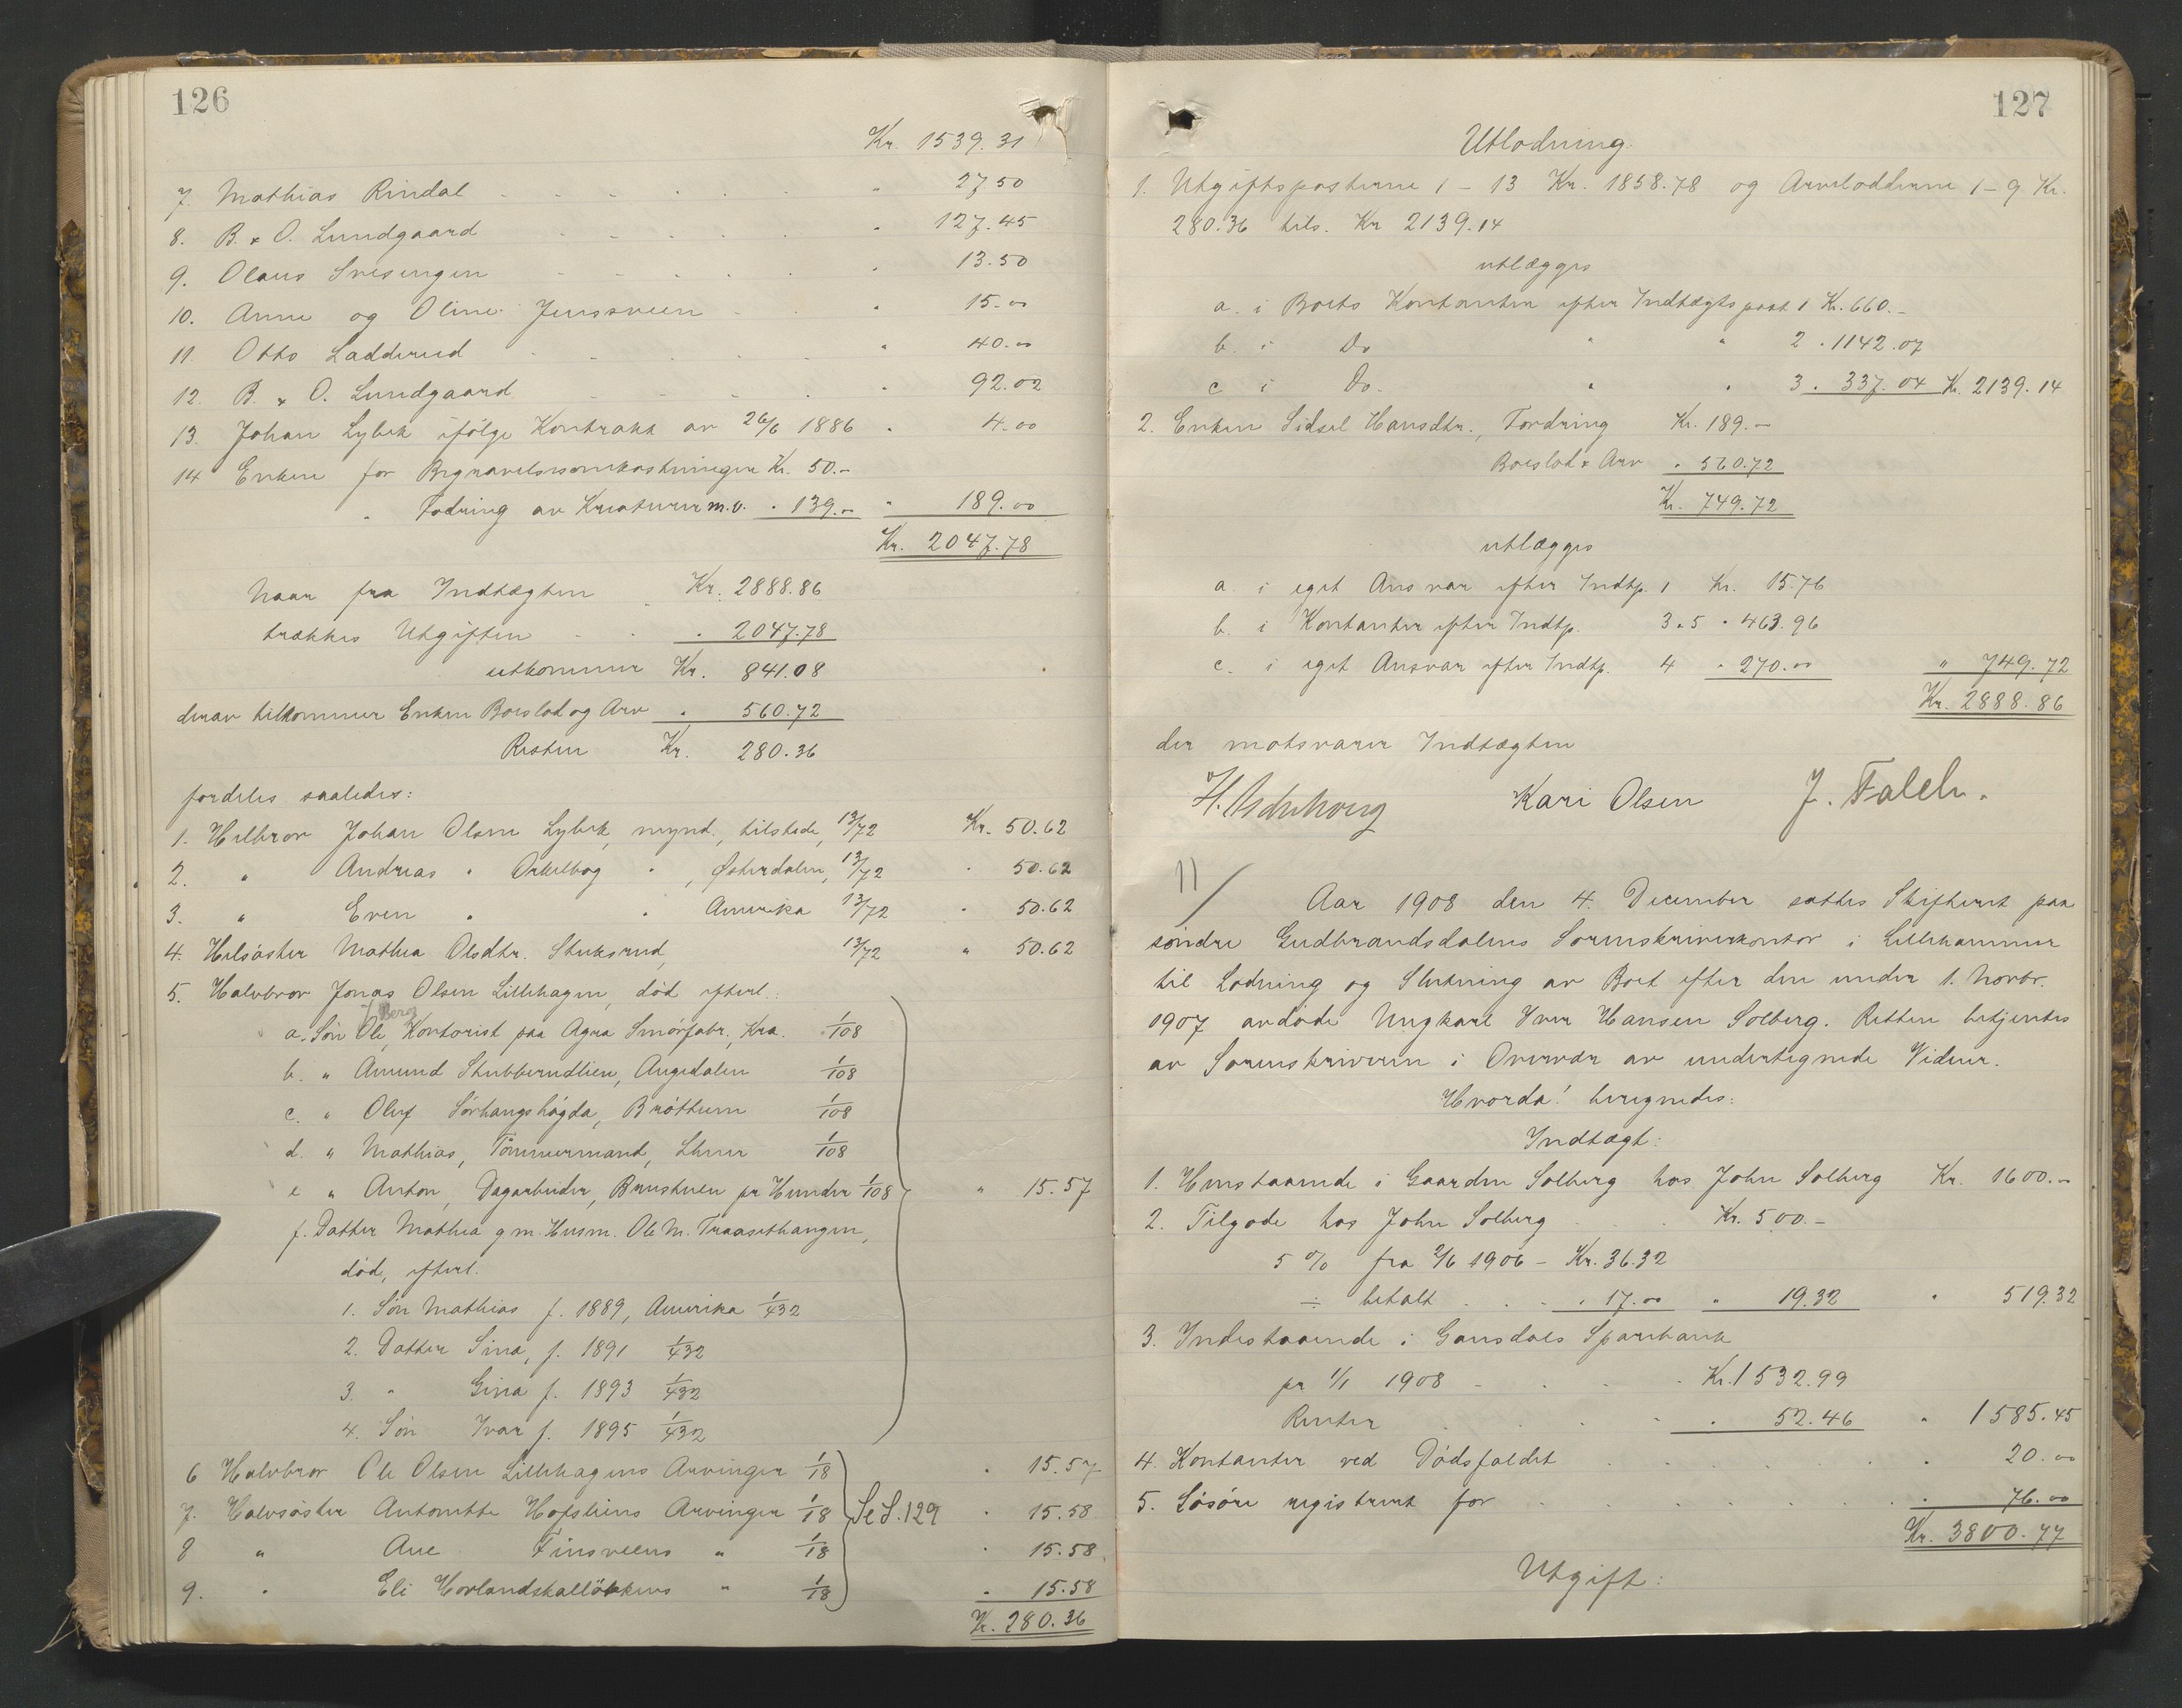 126
Kr. 1539.31
7. Mathias Rindal " 27.50
8. B. & O. Lundgaard " 127.45
9. Olaus Svesengen " 13.50
10. Anne og Oline Jensveen " 15.00
11. Otto Ladderud " 40.00
12. B. & O. Lundgaard " 92.02
13. Johan Lybek ifølge Kontrakt av 26/6 1886 " 4.00
14 Enken for Begravelsesomkostninger Kr. 50.-
" Fodring av Kreaturer m.v. " 139.- " 189.00
Kr. 2047.78
Naar fra Indtægten Kr. 2888.86
trækkes Utgiften " 2047.78
utkommer Kr. 841.08
derav tilkommer Enken Boeslod og Arv " 560.72
Resten Kr. 280.36
fordeles saaledes:
1. Helbror Johan Olsen Lybek, mynd., tilstede, 13/72 Kr. 50.62
2. " Andreas " Orkelbog " , Østerdalen, 13/72 " 50.62
3. " Even " " Amerika 13/72 " 50.62
4. Helsøster Mathea Olsdtr. Stuksrud, 13/72 " 50.62
5. Halvbror Jonas Olsen Lillehagen, død efterl.
Berg
a. Søn Ole, Kontorist paa Agra Smørfabr., Kra. 1/108
b. " Amund Stubberudlien, Augedalen 1/108
c. " Oluf Sørhaugshøgda, Brøttum 1/108
d. " Mathias, Tømmermand, 1/108
e " Anton, Dagarbeider, Brustuen pr Hunder 1/108 " 15.57
f. Datter Mathea g m. Husm. Ole M. Traasethaugen,
død, efterl.
1. Søn Mathias f. 1889, Amerika 1/432
2. Datter Sina, f. 1891 1/432
3. " Gina f. 1893 1/432
4. Søn Ivar f. 1895 1/432
6 Halvbror Ole Olsen Lillehagens Arvinger 1/18 " 15.57
7. Halvsøster Antonette Hofsliens Arvinger 1/18 Se S. 129 " 15.58
8 " Ane Finsveens " 1/18 " 15.58
9. " Eli Hovlandskalløkkens " 1/18 " 15.58
Kr. 280.36
127
Utlodning.
1. Utgiftsposterne 1-13 Kr. 1858.78 og Arvelodderne 1-9 Kr.
280.36 tils. Kr 2139.14
utlægges
a. i Boets Kontanter efter Indtægtspost 1 Kr. 660.-
b. i Do " " 2 " 1142.07
c i Do. " " 3 " 337.04 Kr. 2139.14
2. Enken Sidsel Hansdtr., Fordring Kr. 189.-
Boeslod & Arv " 560.72
Kr. 749.72
utlægges
a. i eget Ansvar efter Indtp. 1 Kr. 15.76
b. i Kontanter efter Indtp. 3 & 5 " 463.96
c. i eget Ansvar efter Indtp. 4 " 270.00 " 749.72
Kr. 2888.86
der motsvarer Indtægten
Kari Olsen J. Falch.
11/
Aar 1908 den 4. December sattes Skifteret paa
søndre Gudbrandsdalens Sorenskriverkontor i Lillehammer
til Lodning og Slutning av Boet efter den under 1. Novbr.
1907 avdøde Ungkarl Iver Hansen Solberg. Retten betjentes
av Sorenskriveren i Overvær av undertegnede Vidner.
Hvorda! beregnedes:
Indtægt:
1. Henstaaende i Gaarden Solberg hos John Solberg Kr. 1600.-
2. Tilgode hos John Solberg Kr. 500.-
5 % fra 2/6 1906 - Kr. 36.32
÷ betalt " 17.00 " 19.32 " 519.32
3. Indestaaende i Gausdals Sparebank
pr 1/1 1908 Kr. 1532.99
Renter " 52.46 " 1585.45
4. Kontanter ved Dødsfaldet " 20.00
5. Løsøre registrert for " 76.00
Kr. 3800.77
Utgift: